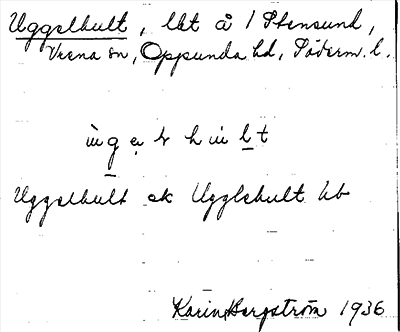 Uggelhult, lht å 1 Stensund,
Vrena sn, Oppunda hd, Söderm. l.
Uggelhult ek Ugglehult hb
Karin Bergström 1936